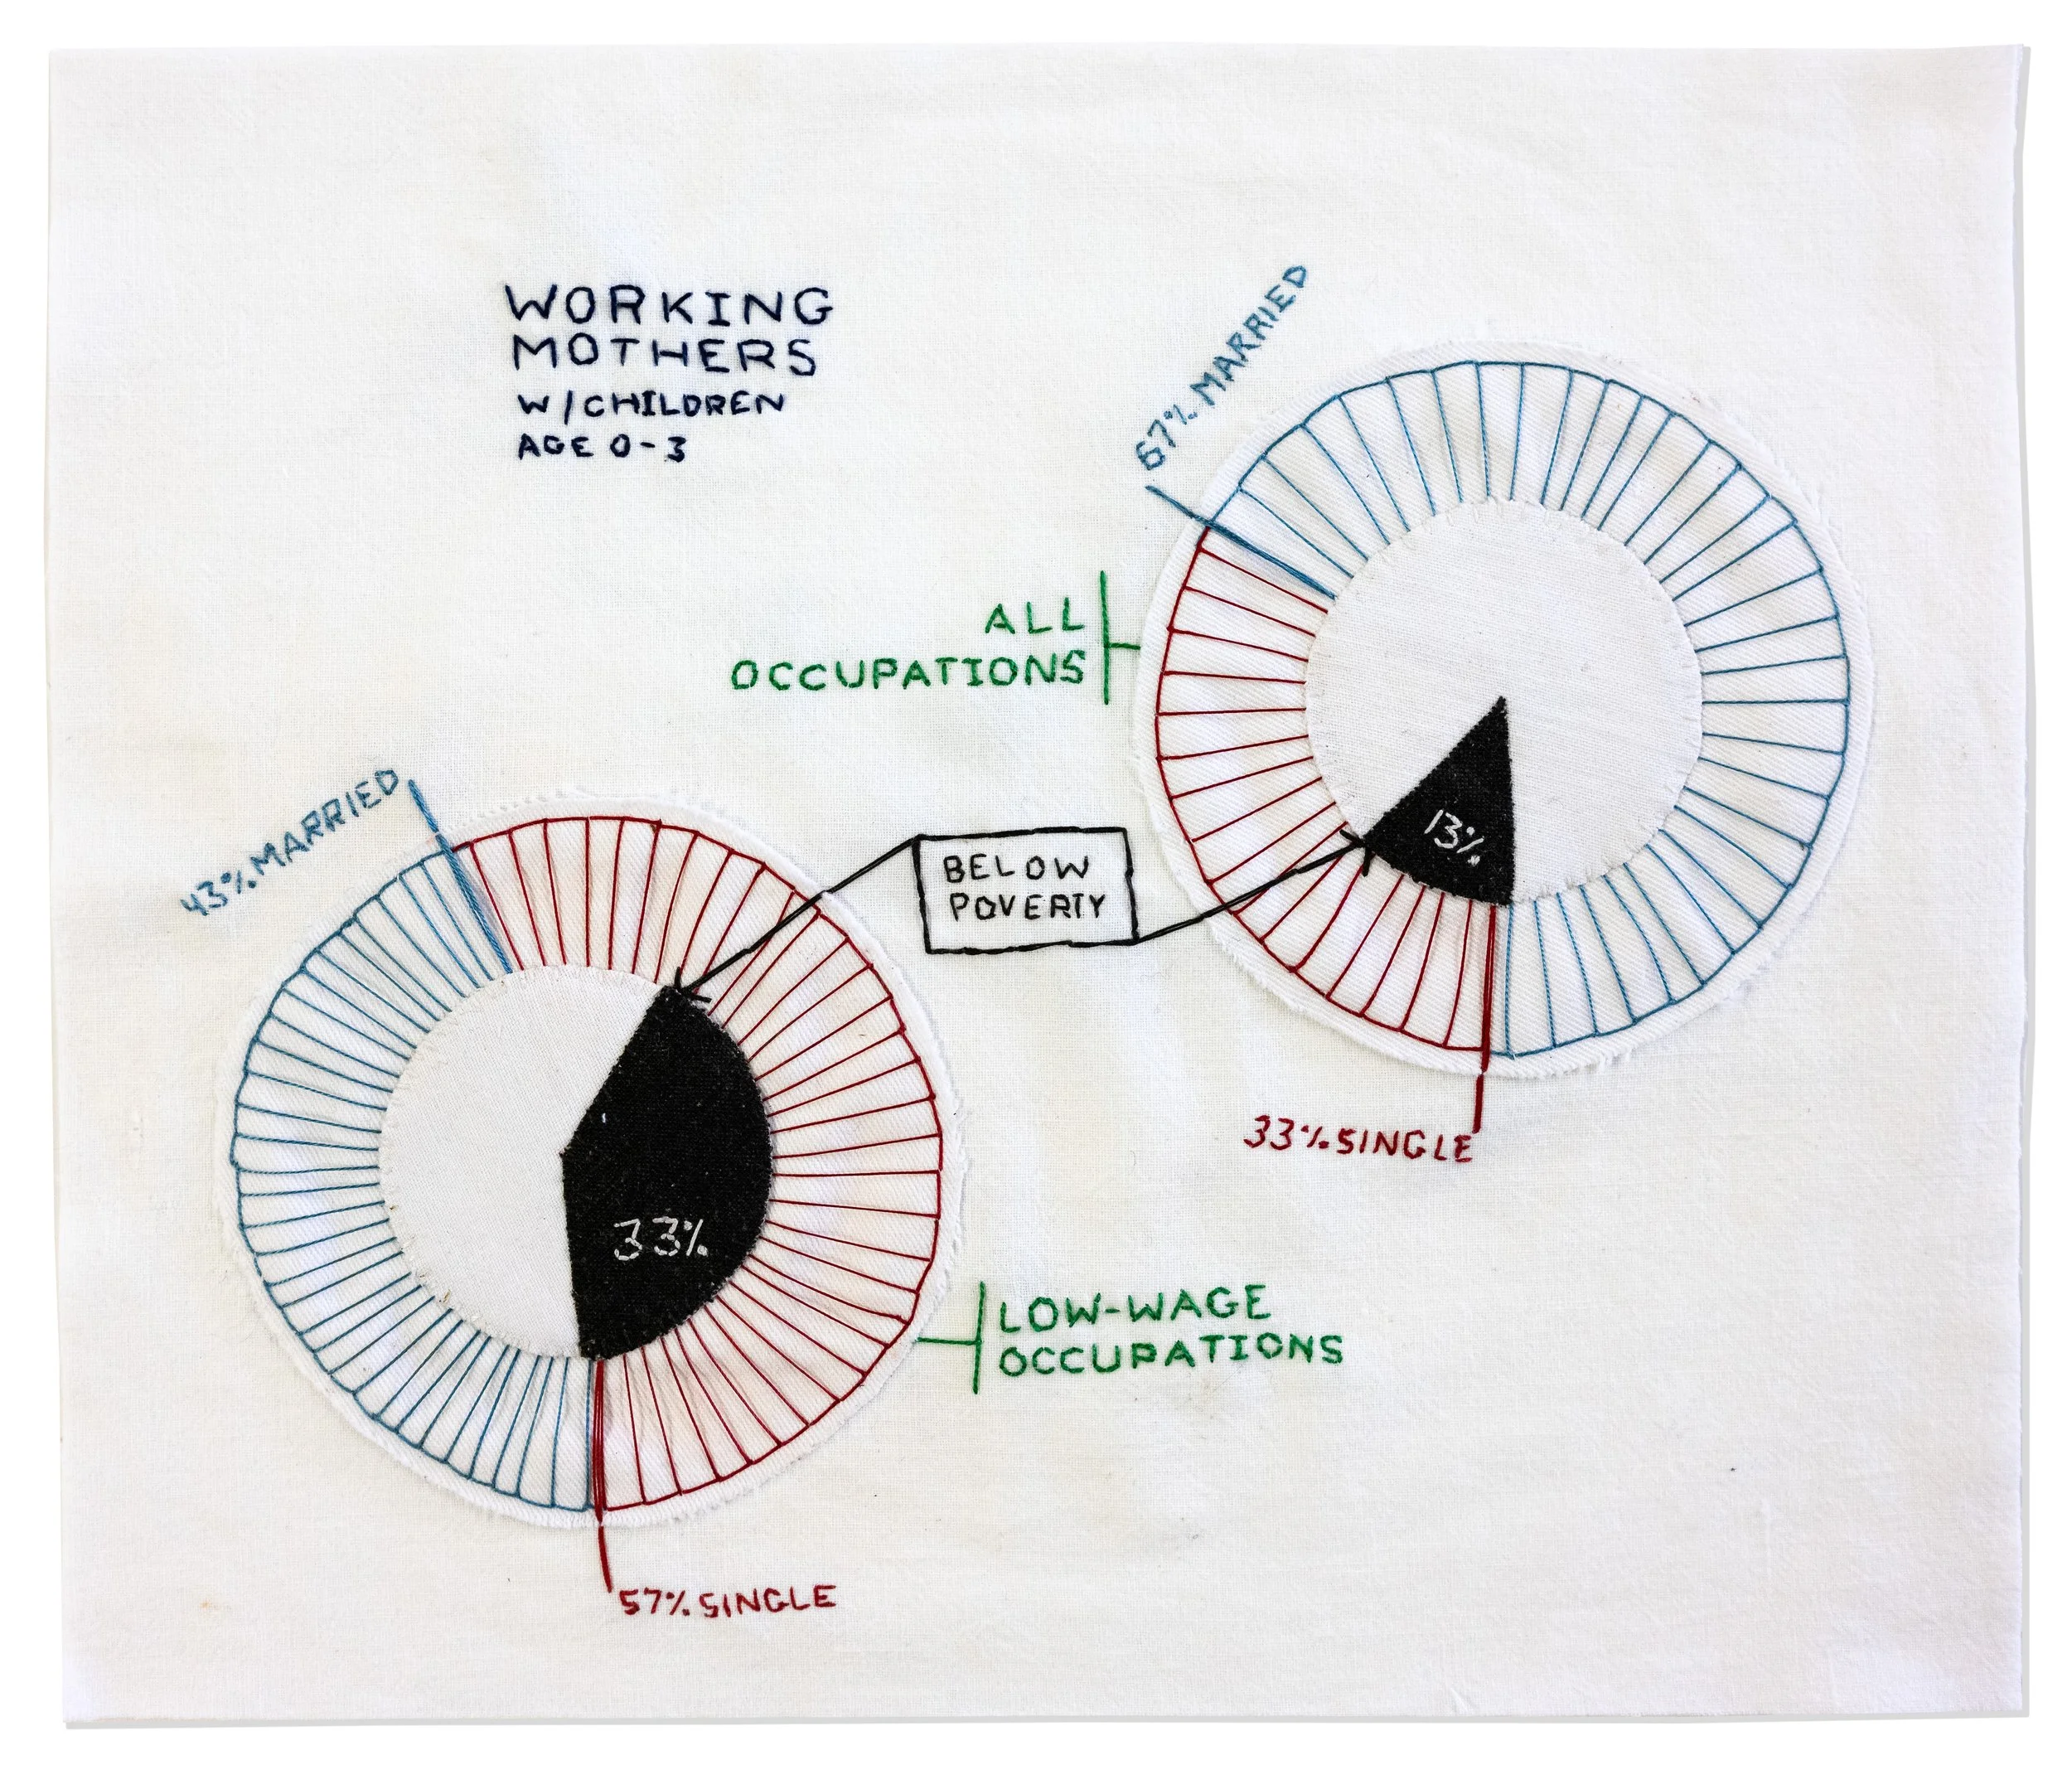 WORKING
MOTHERS
W/CHILDREN
AGE 0-3
67% MARRIED
ALL
OCCUPATIONS
13%
33% SINGLE
BELOW
POVERTY
43% MARRIED
33%
LOW-WAGE
OCCUPATIONS
57% SINGLE